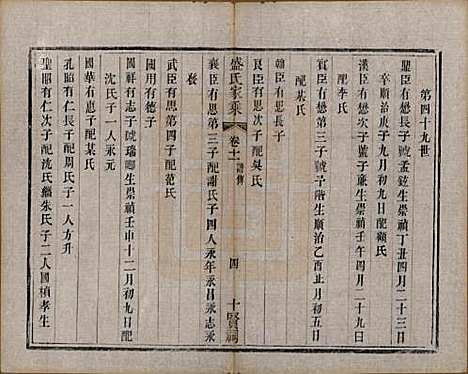 第四十九世
聖臣有懋長子號孟鉉生崇禎丁丑四月二十三日
卒順治庚子九月初九日配顧氏
漢臣有懋次子號子廉生崇禎壬午四月二十九日
配李氏
賓臣有懋第三子生順治乙酉正月初五日
配某氏
翰臣有思長子
良臣有思次子配吳氏
襄臣有思第三子配謝氏子四人永年永昌永志永
盛氏家乘
卷十一
譜傳
四
十賢祠
武臣有思第四子配范氏
國用有德子
國祥有志子號瑞卿生崇禎壬申十二月初九日配
沈氏子一人永元
國華有恵子配某氏
孔昭有仁長子配周氏子一人方升
聖昭有仁次子配沈氏繼朱氏子二人國楨孝生